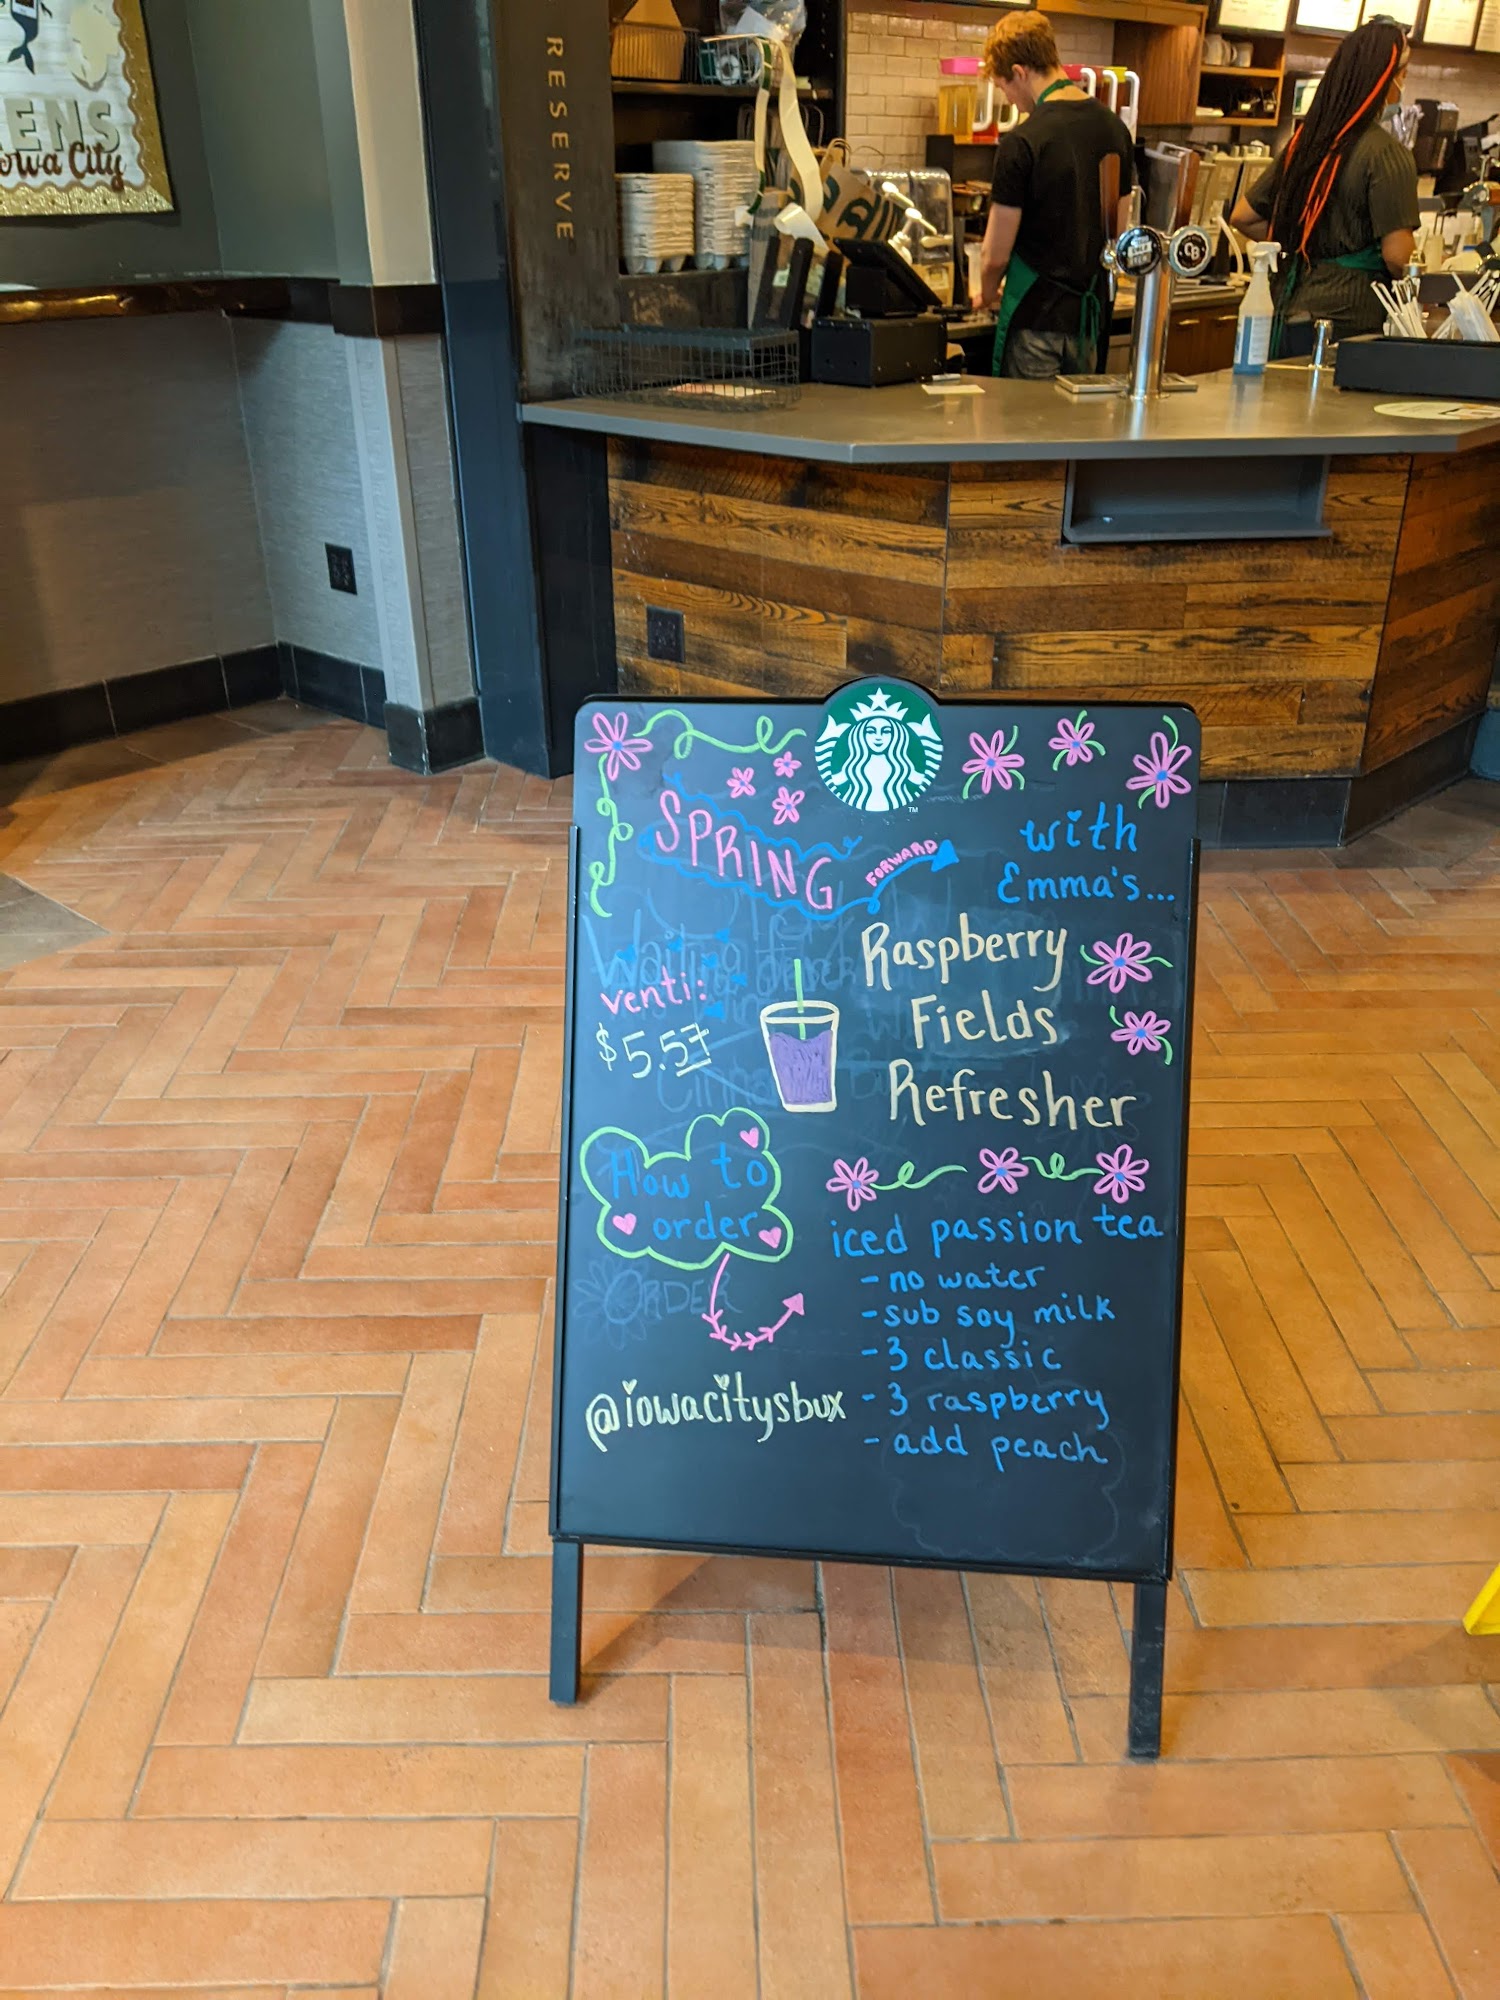 RESERVE
ENS
Iowa City
SPRING
FORWARD
with
Emma's...
Raspberry
Fields
Refresher
venti:
$5.57
How to
order
iced passion tea
- no water
- sub soy milk
- 3 classic
- 3 raspberry
- add peach
ORDER
@iowacitysbux
TM